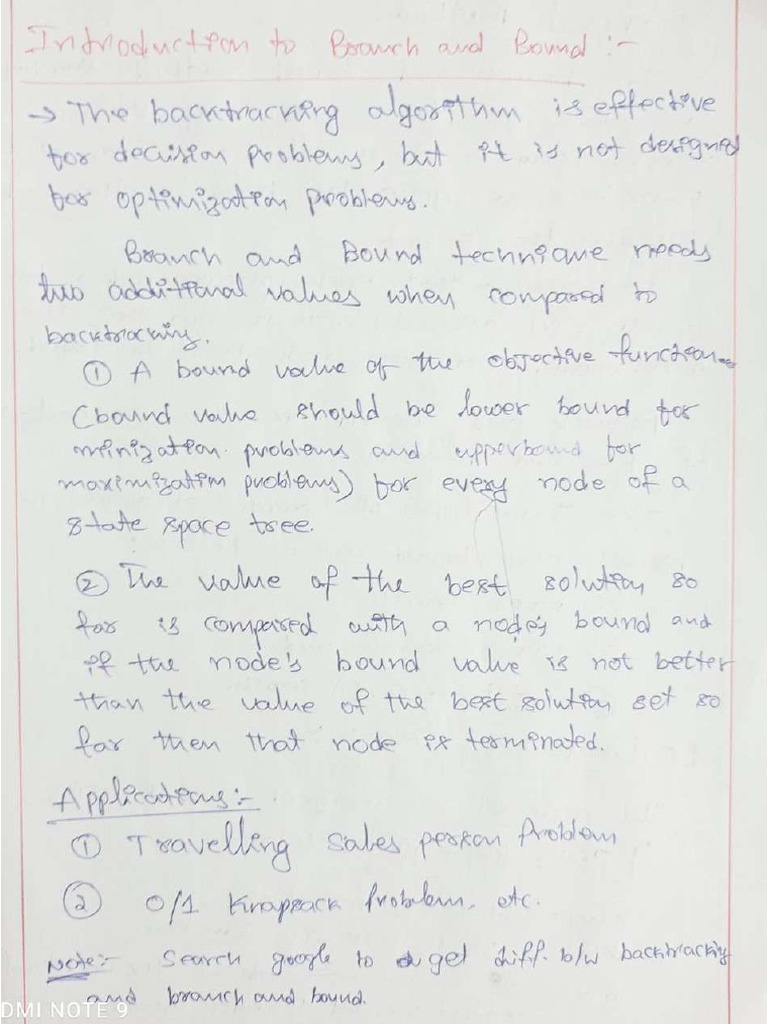 Introduction to Branch and Bound :-
→ The backtracking algorithm is effective
for decision problems, but it is not designed
for optimization problems.
Branch and Bound technique needs
two additional values when compared to
backtracking.
① A bound value of the objective function
(bound value should be lower bound for
minization problems and upperbound for
maximization problems) for every node of a
state space tree.
② The value of the best solution so
far is compared with a node's bound and
if the node's bound value is not better
than the value of the best solution set so
far then that node is terminated.
Applications:-
① Travelling sales person Problem
② 0/1 Knapsack Problem, etc.
Note:- Search google to get diff. b/w backtracking
and branch and bound.
DMI NOTE 9